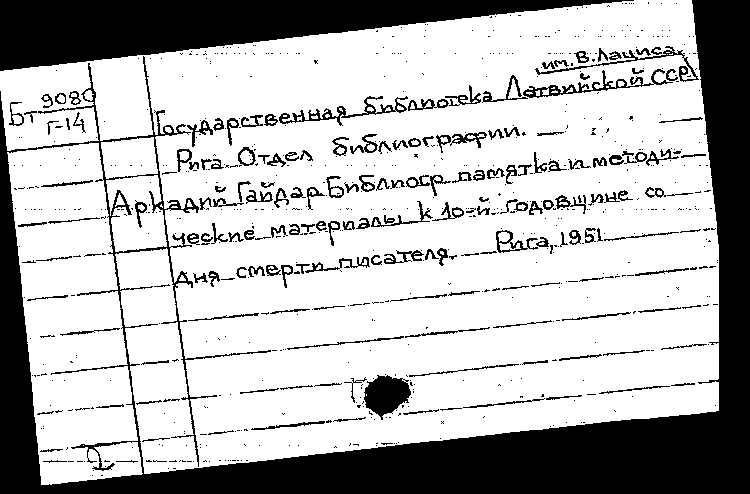 им. В. Лациса.
Бт 9080
Г-14
Государственная библиотека Латвийской ССР
Рига Отдел библиографии. —
Аркадий Гайдар Библиогр памятка и методи-
ческие материалы к 10-й годовщине со
дня смерти писателя. Рига, 1951
2